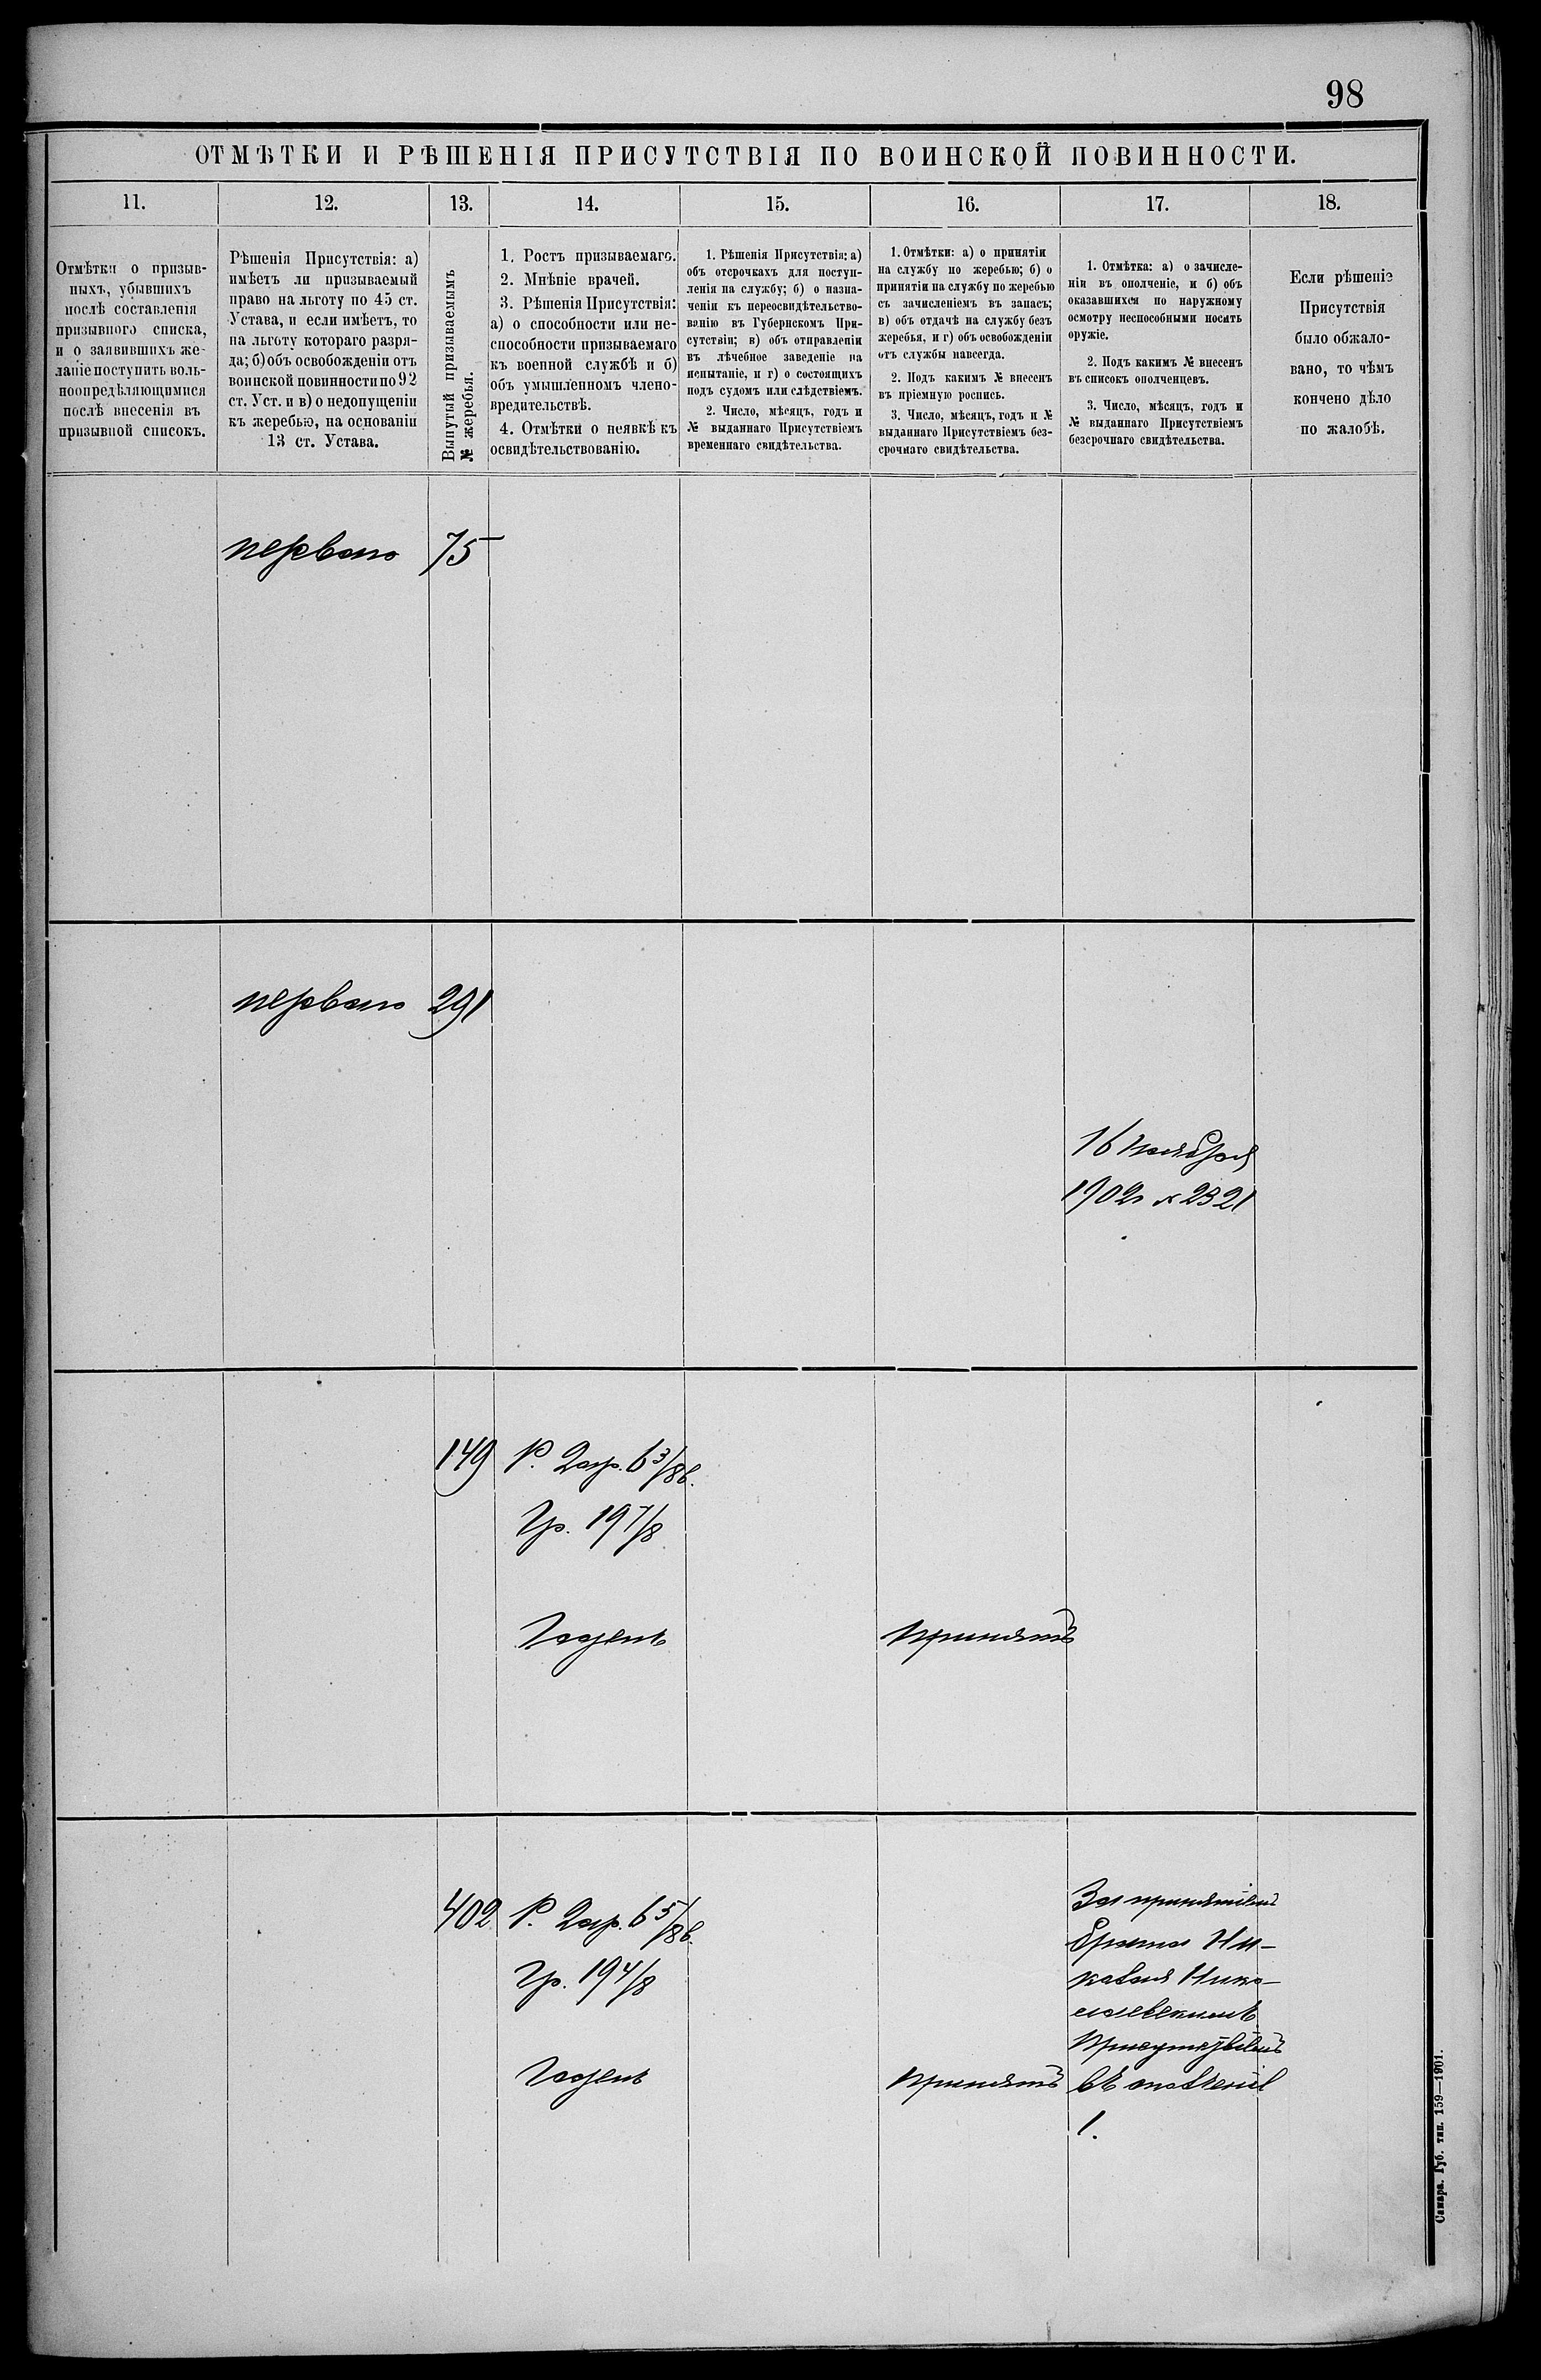 98
ОТМѢТКИ И РѢШЕНІЯ ПРИСУТСТВІЯ ПО ВОИНСКОЙ ПОВИННОСТИ.
11.
12.
13.
14.
15.
16.
17.
18.
Отмѣтки о призыв-
ныхъ, убывшихъ
послѣ составленія
призывного списка,
и о заявившихъ же-
ланіе поступить воль-
ноопредѣляющимися
послѣ внесенія въ
призывной списокъ.
Рѣшенія Присутствія: а)
имѣетъ ли призываемый
право на льготу по 45 ст.
Устава, и если имѣетъ, то
на льготу котораго разря-
да; б) объ освобожденіи отъ
воинской повинности по 92
ст. Уст. и в) о недопущеніи
къ жеребью, на основаніи
13 ст. Устава.
Вынутый призываемымъ
№ жеребья.
1. Ростъ призываемаго.
2. Мнѣніе врачей.
3. Рѣшенія Присутствія:
а) о способности или не-
способности призываемаго
къ военной службѣ и б)
объ умышленномъ члено-
вредительствѣ.
4. Отмѣтки о неявкѣ къ
освидѣтельствованію.
1. Рѣшенія Присутствія: а)
объ отсрочкахъ для поступ-
ленія на службу; б) о назна-
ченіи къ переосвидѣтельство-
ванію въ Губернскомъ При-
сутствіи; в) объ отправленіи
въ лѣчебное заведеніе на
испытаніе, и г) о состоящихъ
подъ судомъ или слѣдствіемъ.
2. Число, мѣсяцъ, годъ и
№ выданнаго Присутствіемъ
временнаго свидѣтельства.
1. Отмѣтки: а) о принятіи
на службу по жеребью; б) о
принятіи на службу по жеребью
съ зачисленіемъ въ запасъ;
в) объ отдачѣ на службу безъ
жеребья, и г) объ освобожденіи
отъ службы навсегда.
2. Подъ какимъ № внесенъ
въ пріемную роспись.
3. Число, мѣсяцъ, годъ и №
выданнаго Присутствіемъ без-
срочнаго свидѣтельства.
1. Отмѣтка: а) о зачисле-
ніи въ ополченіе, и б) объ
оказавшихся по наружному
осмотру неспособными носить
оружіе.
2. Подъ какимъ № внесенъ
въ списокъ ополченцевъ.
3. Число, мѣсяцъ, годъ и
№ выданнаго Присутствіемъ
безсрочнаго свидѣтельства.
Если рѣшеніе
Присутствія
было обжало-
вано, то чѣмъ
кончено дѣло
по жалобѣ.
перваго 75
перваго 291
16 ноября
1902 № 2321
149 Р. 2 ар. 6 3/8 в.
Гр. 19 7/8
Годенъ
принятъ
402 Р. 2 ар. 6 5/8 в.
Гр. 19 4/8
Годенъ
принятъ
За принятіемъ
брата Ни-
колая Нико-
лаевскимъ
Присутствіемъ
въ ополченіе
1.
Самара. Губ. тип. 159—1901.